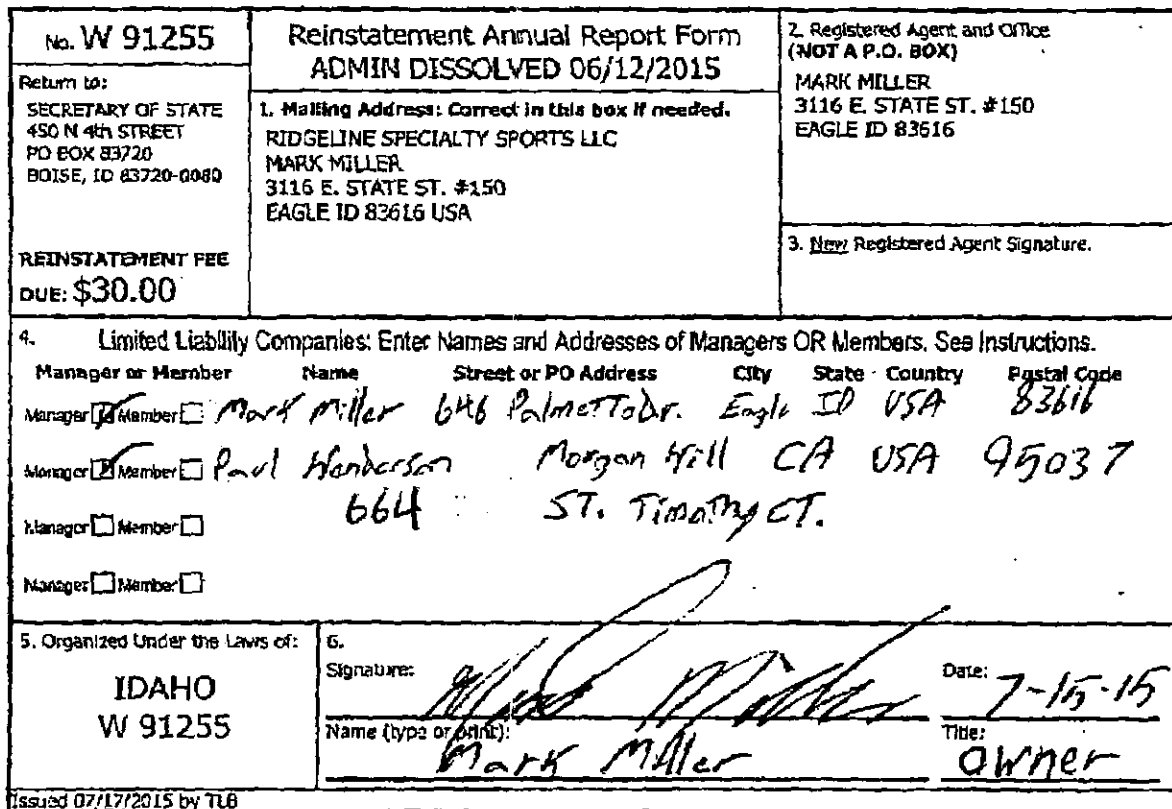 No. W 91255
Return to:
SECRETARY OF STATE
450 N 4th STREET
PO BOX 83720
BOISE, ID 83720-0080
REINSTATEMENT FEE
DUE: $30.00
Reinstatement Annual Report Form
ADMIN DISSOLVED 06/12/2015
1. Mailing Address: Correct in this box if needed.
RIDGELINE SPECIALTY SPORTS LLC
MARK MILLER
3116 E. STATE ST. #150
EAGLE ID 83616 USA
2. Registered Agent and Office
(NOT A P.O. BOX)
MARK MILLER
3116 E. STATE ST. #150
EAGLE ID 83616
3. New Registered Agent Signature.
4. Limited Liability Companies: Enter Names and Addresses of Managers OR Members. See Instructions.
Manager or Member Name Street or PO Address City State Country Postal Code
Manager Member Mark Miller 646 Palmetto Dr. Eagle ID USA 83616
Manager Member Paul Henderson Morgan Hill CA USA 95037
664 ST. Timothy CT.
Manager Member
Manager Member
5. Organized Under the Laws of:
IDAHO
W 91255
6.
Signature: Mark Miller Date: 7-15-15
Name (type or print): Mark Miller Title: owner
Issued 07/17/2015 by TLB